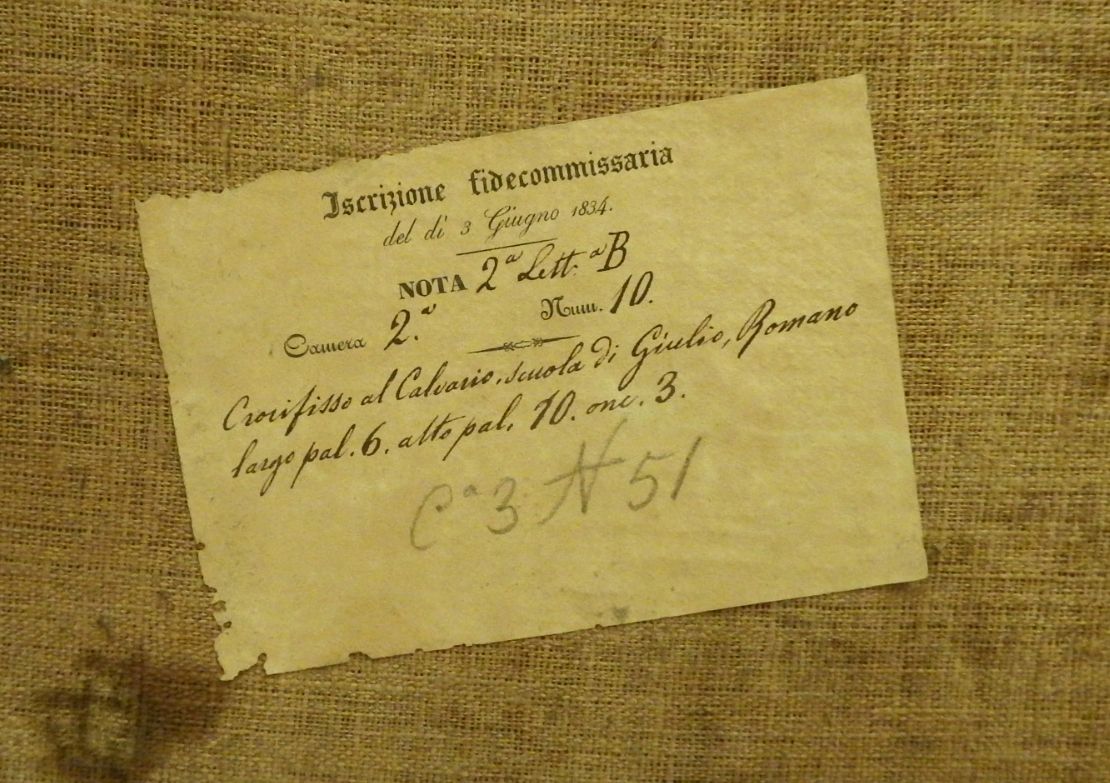 Iscrizione fidecommissaria
del dì 3 Giugno 1834.
NOTA 2ª Lett.ª B
Camera 2.ª Num. 10.
Crocifisso al Calvario. scuola di Giulio, Romano
largo pal. 6. alto pal. 10. onc. 3.
Cª 3 N 51